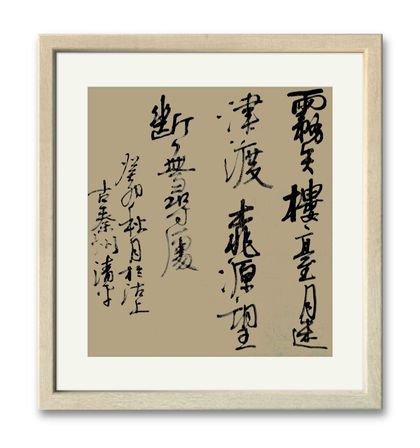 霧失樓臺月迷
津渡桃源望
斷無尋處
癸卯秋月於沽上
古秦